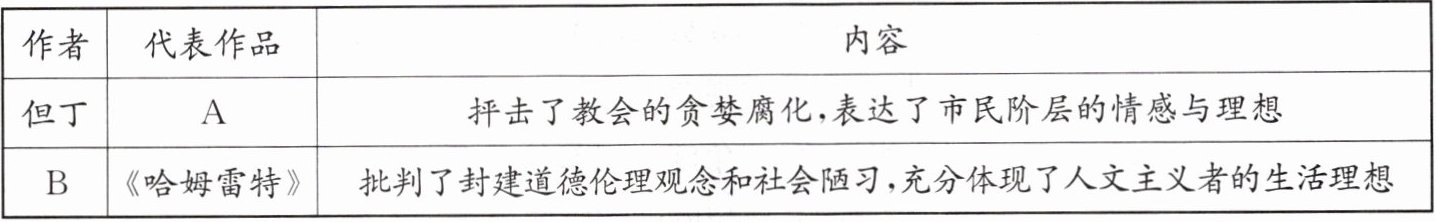 作者 代表作品 内容
但丁 A 抨击了教会的贪婪腐化,表达了市民阶层的情感与理想
B 《哈姆雷特》 批判了封建道德伦理观念和社会陋习,充分体现了人文主义者的生活理想